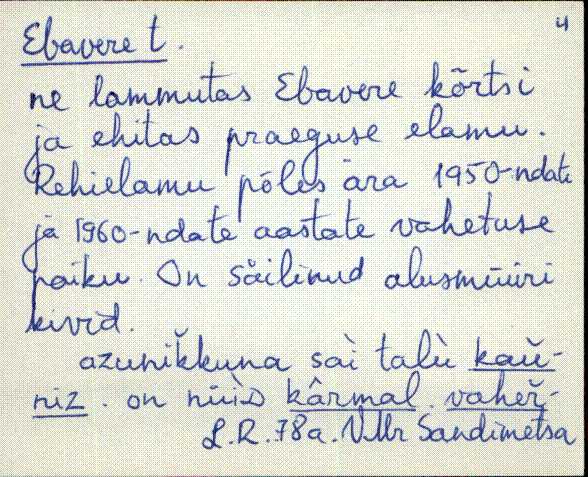 4
Ebavere t.
ne lammutas Ebavere kõrtsi
ja ehitas praeguse elamu.
Rehielamu põles ära 1950-ndate
ja 1960-ndate aastate vahetuse
paiku. On säilinud alusmüüri
kivid.
azunikkuna saì talù kaŭ-
niz. on nüüD kârmal. vaheř-
L.R. 78a. VMr Sandimetsa